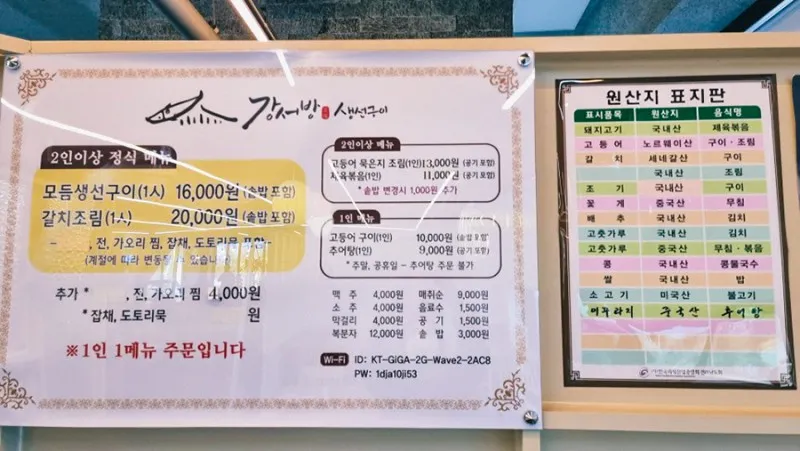 강서방 생선구이
2인이상 정식 메뉴
모듬생선구이(1人) 16,000원 (솥밥 포함)
갈치조림(1人) 20,000원 (솥밥 포함)
- , 전, 가오리 찜, 잡채, 도토리묵 포함-
(계절에 따라 변동될 수 있습니다)
추가 * , 전, 가오리 찜 4,000원
*잡채, 도토리묵 원
※1인 1메뉴 주문입니다
2인이상 메뉴
고등어 묵은지 조림(1인)13,000원 (공기 포함)
제육볶음(1인) 11,000원 (공기 포함)
*솥밥 변경시 1,000원 추가
1인 메뉴
고등어 구이(1인) 10,000원 (솥밥 포함)
추어탕(1인) 9,000원 (공기 포함)
*주말, 공휴일 - 추어탕 주문 불가
맥 주 4,000원 매취순 9,000원
소 주 4,000원 음료수 1,500원
막걸리 4,000원 공 기 1,500원
복분자 12,000원 솥 밥 3,000원
Wi-Fi ID: KT-GiGA-2G-Wave2-2AC8
PW: 1dja10ji53
원산지 표지판
표시품목 원산지 음식명
돼지고기 국내산 제육볶음
고 등 어 노르웨이산 구이 · 조림
갈 치 세네갈산 구이
국내산 조림
조 기 국내산 구이
꽃 게 중국산 무침
배 추 국내산 김치
고춧가루 국내산 김치
고춧가루 중국산 무침 · 볶음
콩 국내산 콩물국수
쌀 국내산 밥
소 고 기 미국산 불고기
미꾸라지 중국산 추어탕